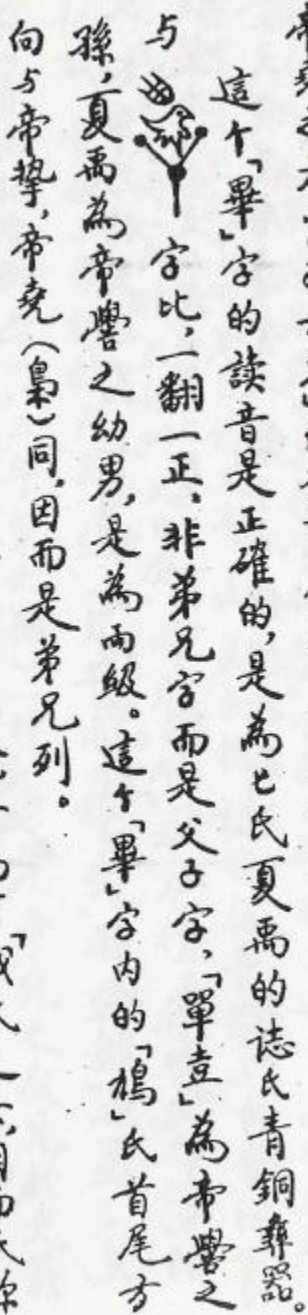 這个「畢」字的讀音是正確的，是為匕氏夏禹的誌氏青銅彝器
与字比，一翻一正，非弟兄字而是父子字，「單壴」為帝嚳之
孫，夏禹為帝嚳之幼男，是為兩級。這个「畢」字内的「鴂」氏首尾方
向与帝摯，帝堯（梟）同，因而是弟兄列。